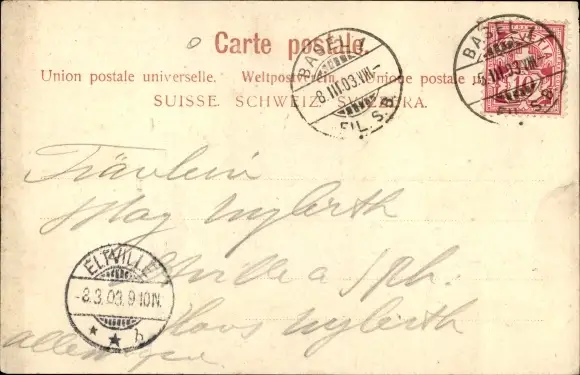 Carte postale.
Union postale universelle. Weltpostverein. Unione postale
SUISSE. SCHWEIZ. SVIZZERA.
BASEL
8.III.03.VIII.-
FIL. S.B.
BASEL
8.III.03.VIII.-
FIL. S.B.
Fräulein
May
Eltville a / Rh.
Haus
allemagne
ELTVILLE
-8.3.03.9-10N.
* * b